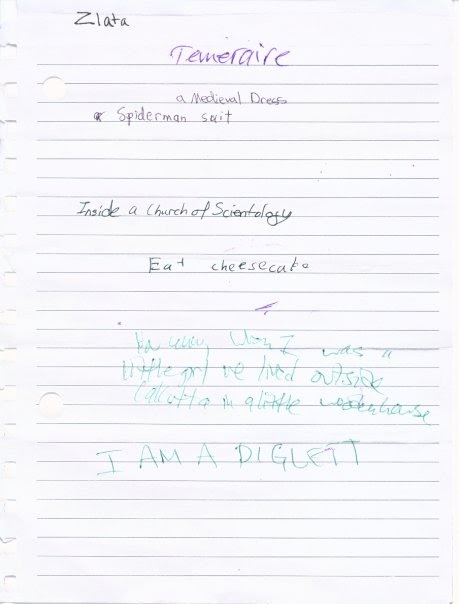 Zlata
Temeraire
a Medieval Dress
Spiderman suit
Inside a Church of Scientology
Eat cheesecake
When I was a
little girl we lived outside
Calcutta in a little
I AM A DIGLETT